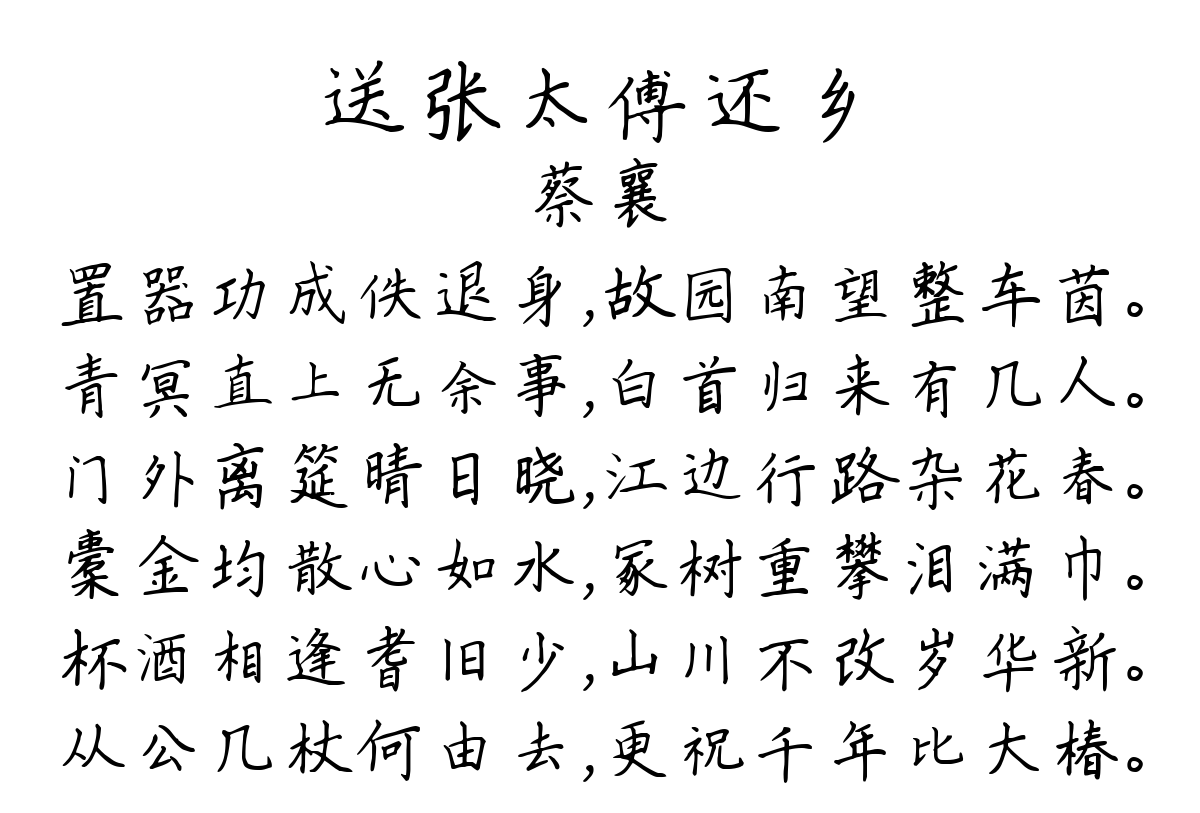 送张太傅还乡
蔡襄
置器功成佚退身,故园南望整车茵。
青冥直上无余事,白首归来有几人。
门外离筵晴日晓,江边行路杂花春。
橐金均散心如水,冢树重攀泪满巾。
杯酒相逢耆旧少,山川不改岁华新。
从公几杖何由去,更祝千年比大椿。